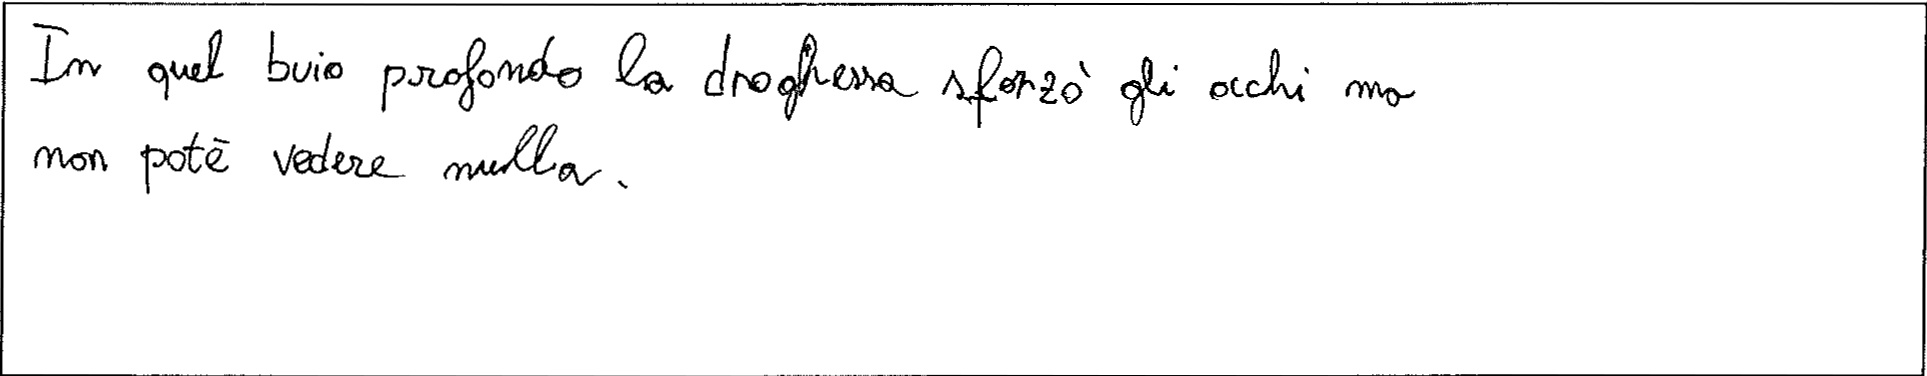 In quel buio profondo la droghessa sforzò gli occhi ma
non potē vedere nulla.